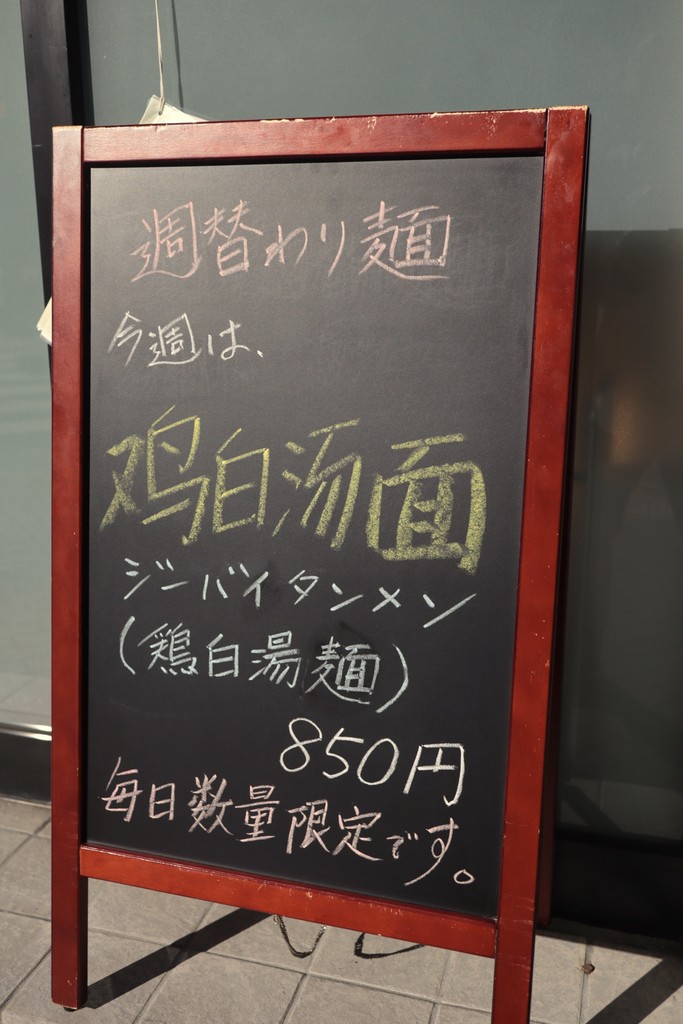 週替わり麺
今週は、
鸡白汤面
ジーバイタンメン
(鶏白湯麺)
850円
毎日数量限定です。